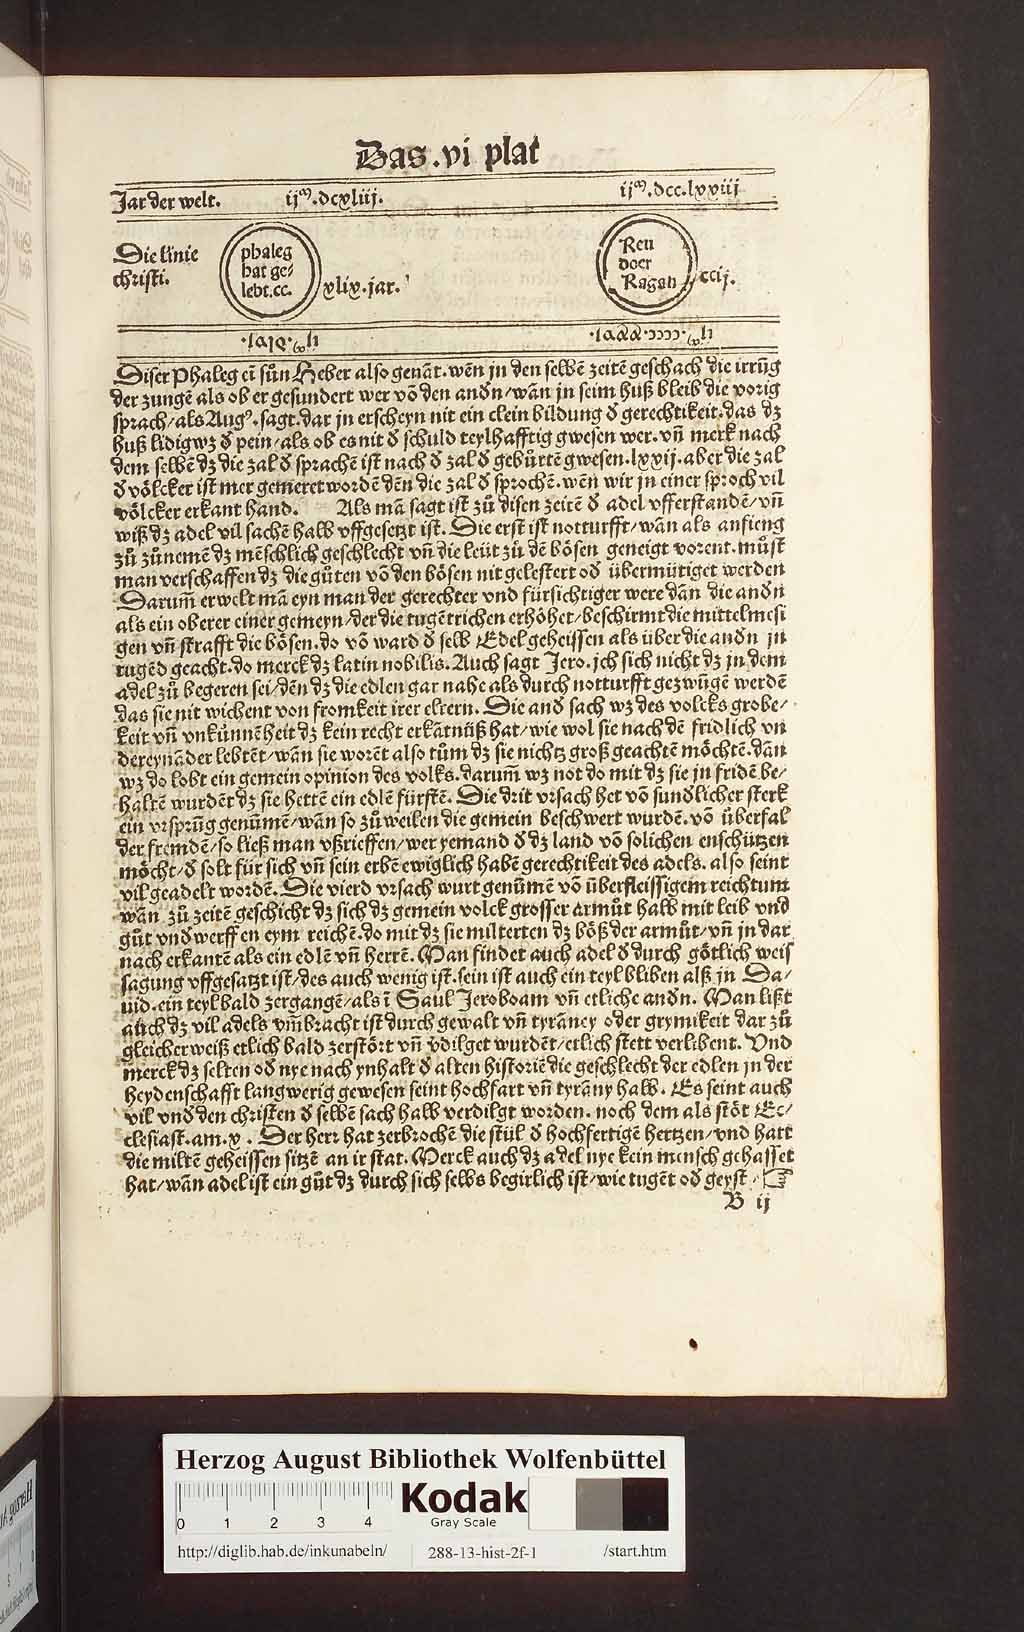 Das .vi plat
Jar der welt. ijᵐ.dcxliij. ijᵐ.dcc.lxxiij
Die linie
christi.
phaleg
hat ge⸗
lebt.cc.
xlix.jar.
Reu
doer
Ragau
ccij.
Diser Phaleg ei sůn Heber also genāt. wēn jn den selbē zeitē geschach die irrūg
der zungē als ob er gesundert wer vō den andn/wān jn seim huß bleib die vorig
sprach/als Augꝰ. sagt. dar jn erscheyn nit ein clein bildung d̕ gerechtikeit. das dz
huß lidig wz d̕ pein/als ob es nit d̕ schuld teylhafftig gwesen wer. vn̄ merk nach
dem selbē dz die zal d̕ sprachē ist nach d̕ zal d̕ gebůrtē gwesen. lxxij. aber die zal
d̕ völcker ist mer gemeret wordē dēn die zal d̕ sprochē. wēn wir jn einer sproch vil
völcker erkant hand. Als mā sagt ist zů disen zeitē d̕ adel vfferstandē/vn̄
wiß dz adel vil sachē halb vffgesetzt ist. Die erst ist notturfft/wān als anfieng
zů zůnemē dz mēschlich geschlecht vn̄ die leüt zů dē bösen geneigt vorent. můst
man verschaffen dz die gůten vō den bösen nit gelestert od̕ übermütiget werden
Darum̄ erwelt mā eyn man der gerechter vnd fürsichtiger were dān die andn
als ein oberer einer gemeyn/der die tugētrichen erhöhet/beschirmt die mittelmesi
gen vn̄ strafft die bösen. do vō ward d̕ selb Edel geheissen als über die andn jn
tugēd geacht. do merck dz latin nobilis. Auch sagt Jero. jch sich nicht dz jn dem
adel zů begeren sei/dēn dz die edlen gar nahe als durch notturfft gezwūgē werdē
das sie nit wichent von fromkeit irer eltern. Die and sach wz des volcks grobe⸗
keit vn̄ vnkünnēheit dz kein recht erkātnüß hat/wie wol sie nach dē fridlich vn
dereynāder lebtēt/wān sie worēt also tům dz sie nichtz groß geachtē möchtē. dan
wz do lobt ein gemein opinion des volks. darum̄ wz not do mit dz sie jn fridē be⸗
haltē wurdēt dz sie hettē ein edlē fürstē. Die drit vrsach het vō sundlicher sterk
ein vrsprūg genūmē/wān so zů weilen die gemein beschwert wurdē. vō überfal
der fremdē/so ließ man vßrieffen/wer yemand d̕ dz land vō solichen enschützen
möcht/d̕ solt für sich vn̄ sein erbē ewiglich habē gerechtikeit des adels. also seint
vil geadelt wordē. Die vierd vrsach wurt genūmē vō überfleissigem reichtum
wān zů zeitē geschicht dz sich dz gemein volck grosser armůt halb mit leib vnd
gůt vndwerffen eym reichē. do mit dz sie milterten dz böß der armůt/vn̄ jn dar
nach erkantē als ein edlē vn̄ herrē. Man findet auch adel d̕ durch götlich weis
sagung vffgesatzt ist/des auch wenig ist. sein ist auch ein teyl bliben alß jn Da⸗
uid. ein teyl bald zergangē/als ī Saul Jeroboam vn̄ etliche andn. Man lißt
auch dz vil adels vm̄bracht ist durch gewalt vn̄ tyrāney oder grymikeit dar zů
gleicherweiß etlich bald zerstört vn̄ vdilget wurdēt/etlich stett verlibent. Vnd
merck dz selten od̕ nye nach ynhalt d̕ alten historiē die geschlecht der edlen jn der
heydenschafft langwerig gewesen seint hochfart vn̄ tyrāny halb. Es seint auch
vil vnd den christen d̕ selbē sach halb verdilgt worden. noch dem als stöt Ec⸗
clesiast. am. x. Der herr hat zerbrochē die stül d̕ hochfertigē hertzen/vnd hatt
die miltē geheissen sitzē an ir stat. Merck auch dz adel nye kein mensch gehasset
hat/wān adel ist ein gůt dz durch sich selbs begirlich ist/wie tugēt od̕ geyst
B ij
Herzog August Bibliothek Wolfenbüttel
0 1 2 3 4
Kodak
Gray Scale
http://diglib.hab.de/inkunabeln/ 288-13-hist-2f-1 /start.htm